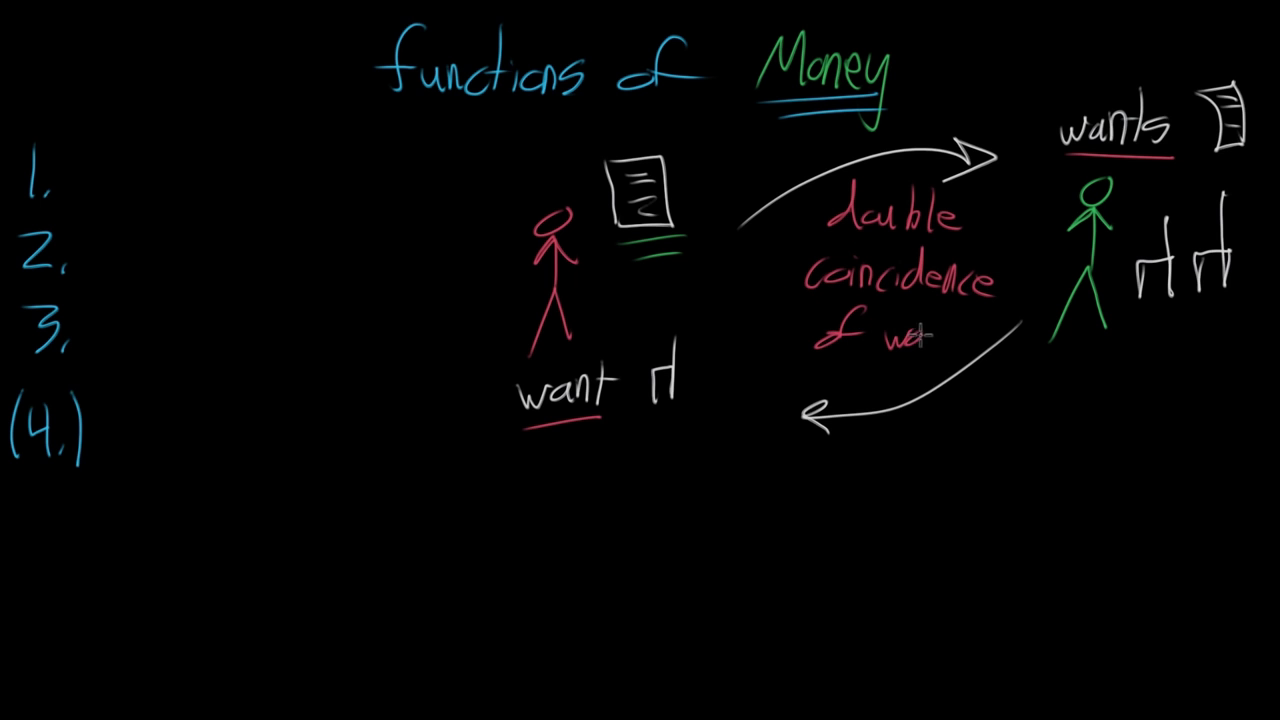 functions of Money
wants
1.
double
2.
coincidence
3.
of
want
(4.)